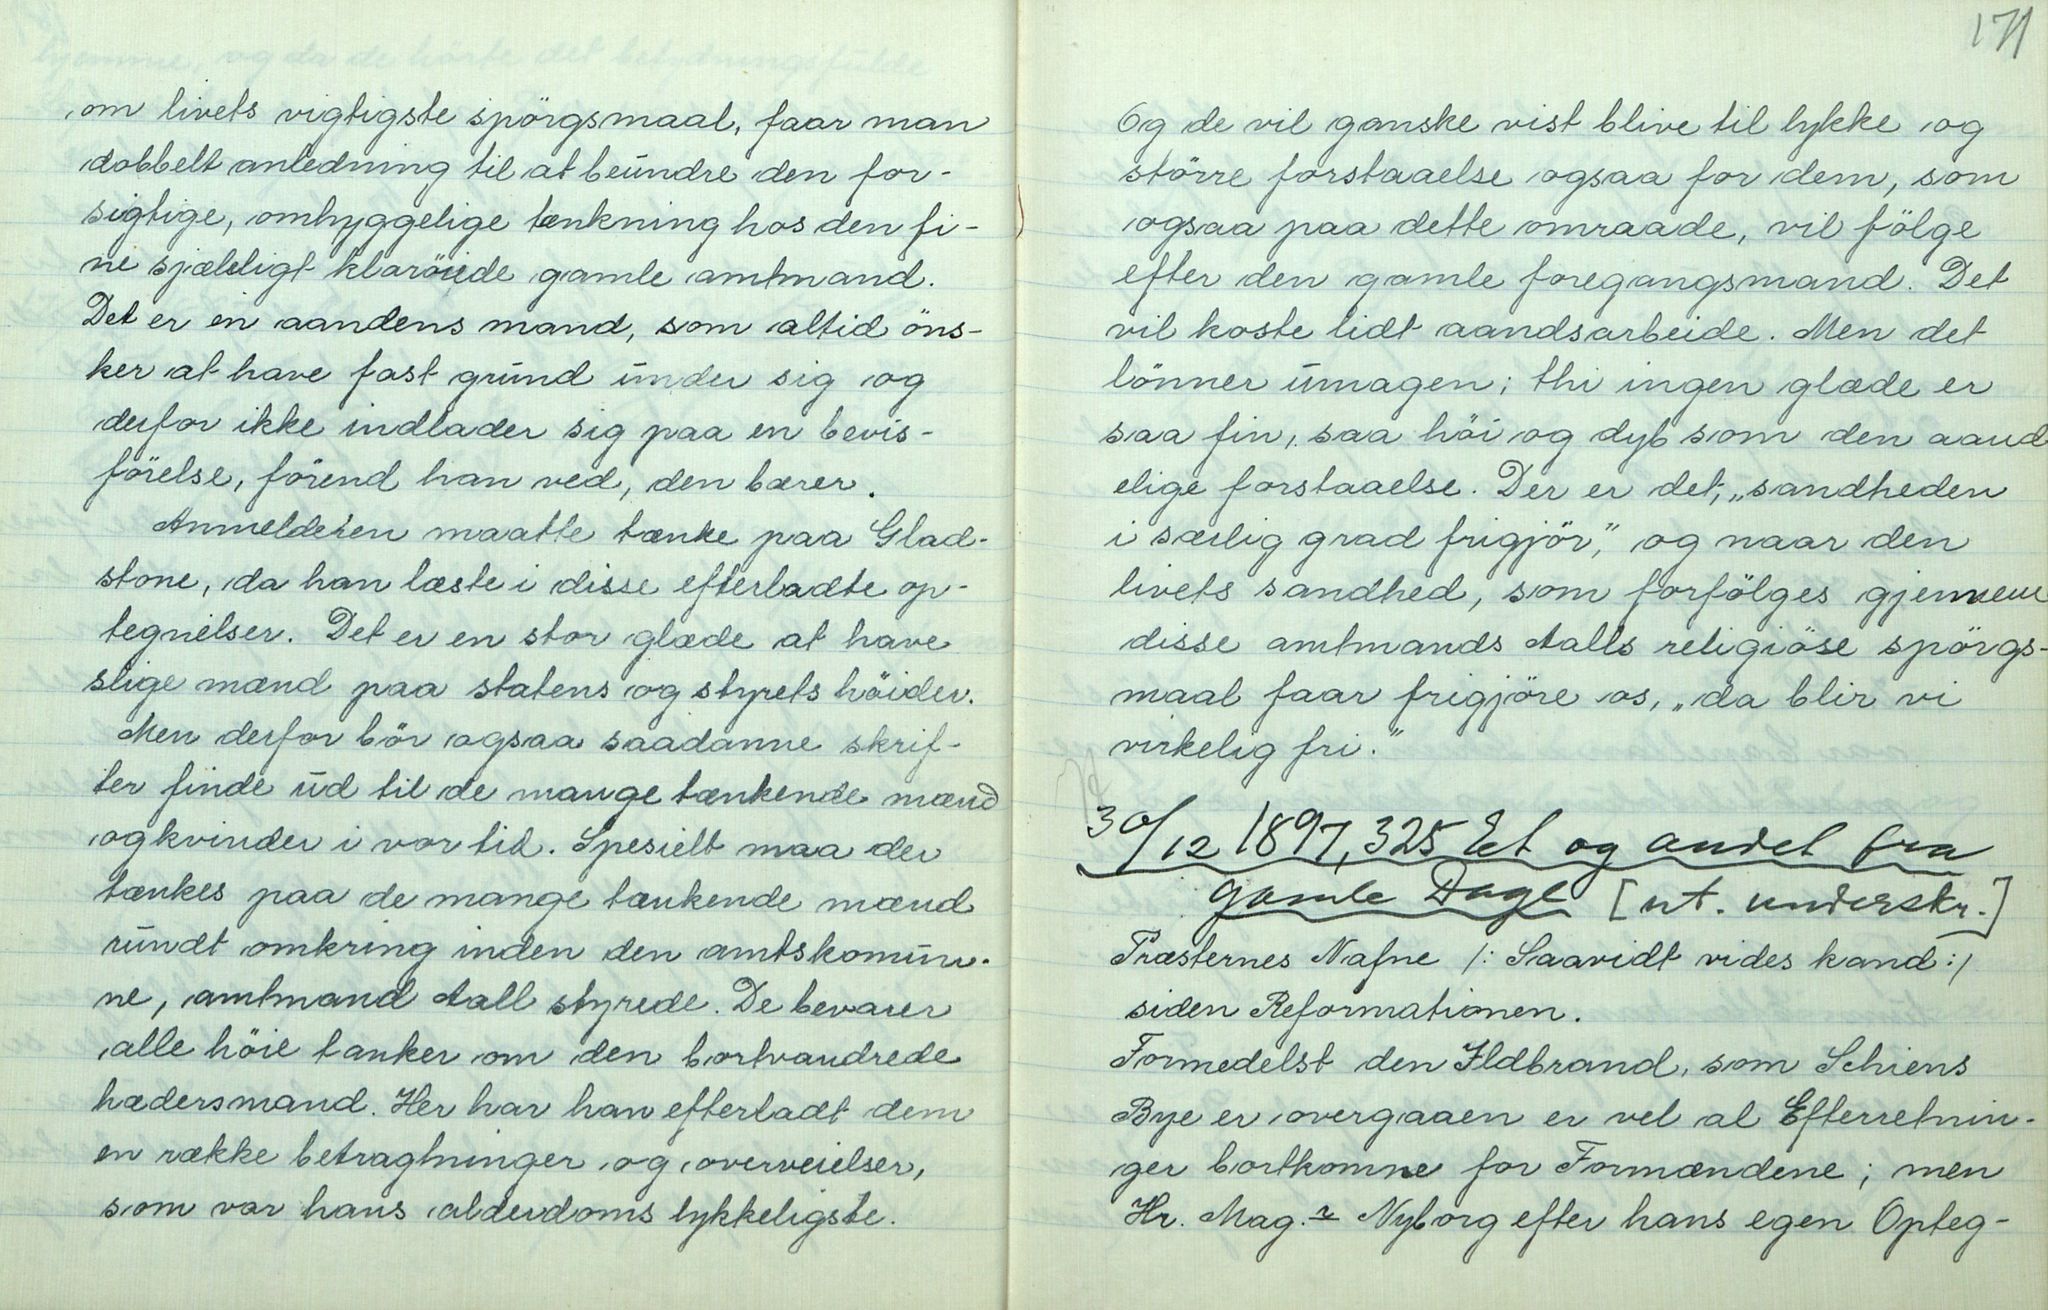 om livets vigtigste spörgsmaal, faar man
dobbelt anledning til at beundre den for-
sigtige, omhyggelige tænkning hos den fi-
ne sjæleligt klaröiede gamle amtmand.
Det er en aandens mand, som altid öns-
ker at have fast grund under sig og
derfor ikke indlader sig paa en bevis-
förelse, förend han ved, den bærer.
Anmelderen maatte tænke paa Glad-
stone, da han læste i disse efterladte op-
tegnelser. Det er en stor glæde at have
slige mænd paa statens og styrets höider.
Men derfor bör ogsaa saadanne skrif-
ter finde ud til de mange tænkende mænd
og kvinder i vor tid. Spesielt maa der
tænkes paa de mange tænkende mænd
rundt omkring inden den amtskommu-
ne, amtmand Aall styrede. De bevarer
alle höie tanker om den bortvandrede
hædersmand. Her har han efterladt dem
en række betragtninger og overveielser,
som var hans alderdoms lykkeligste.
171
Og de vil ganske vist blive til lykke og
större forstaaelse ogsaa for dem, som
ogsaa paa dette omraade, vil fölge
efter den gamle foregangsmand. Det
vil koste lidt aandsarbeide. Men det
lönner umagen; thi ingen glæde er
saa fin, saa höi og dyb som den aand
elige forstaaelse. Der er det, „sandheden
i særlig grad frigjör," og naar den
livets sandhed, som forfölges gjennem
disse amtmands Aalls religiöse spörgs-
maal faar frigjöre os, „da blir vi
virkelig fri."
30/12 1897, 325 Et og andet fra
gamle Dage [ut. underskr.]
Præsternes Nafne /: Saavidt vides kand :/
siden Reformationen.
Formedelst den Ildbrand, som Schiens
Bye er overgaaen er vel al Efterretnin-
ger bortkomne for Formændene; men
Hr. Mag.r Nyborg efter hans egen Opteg-